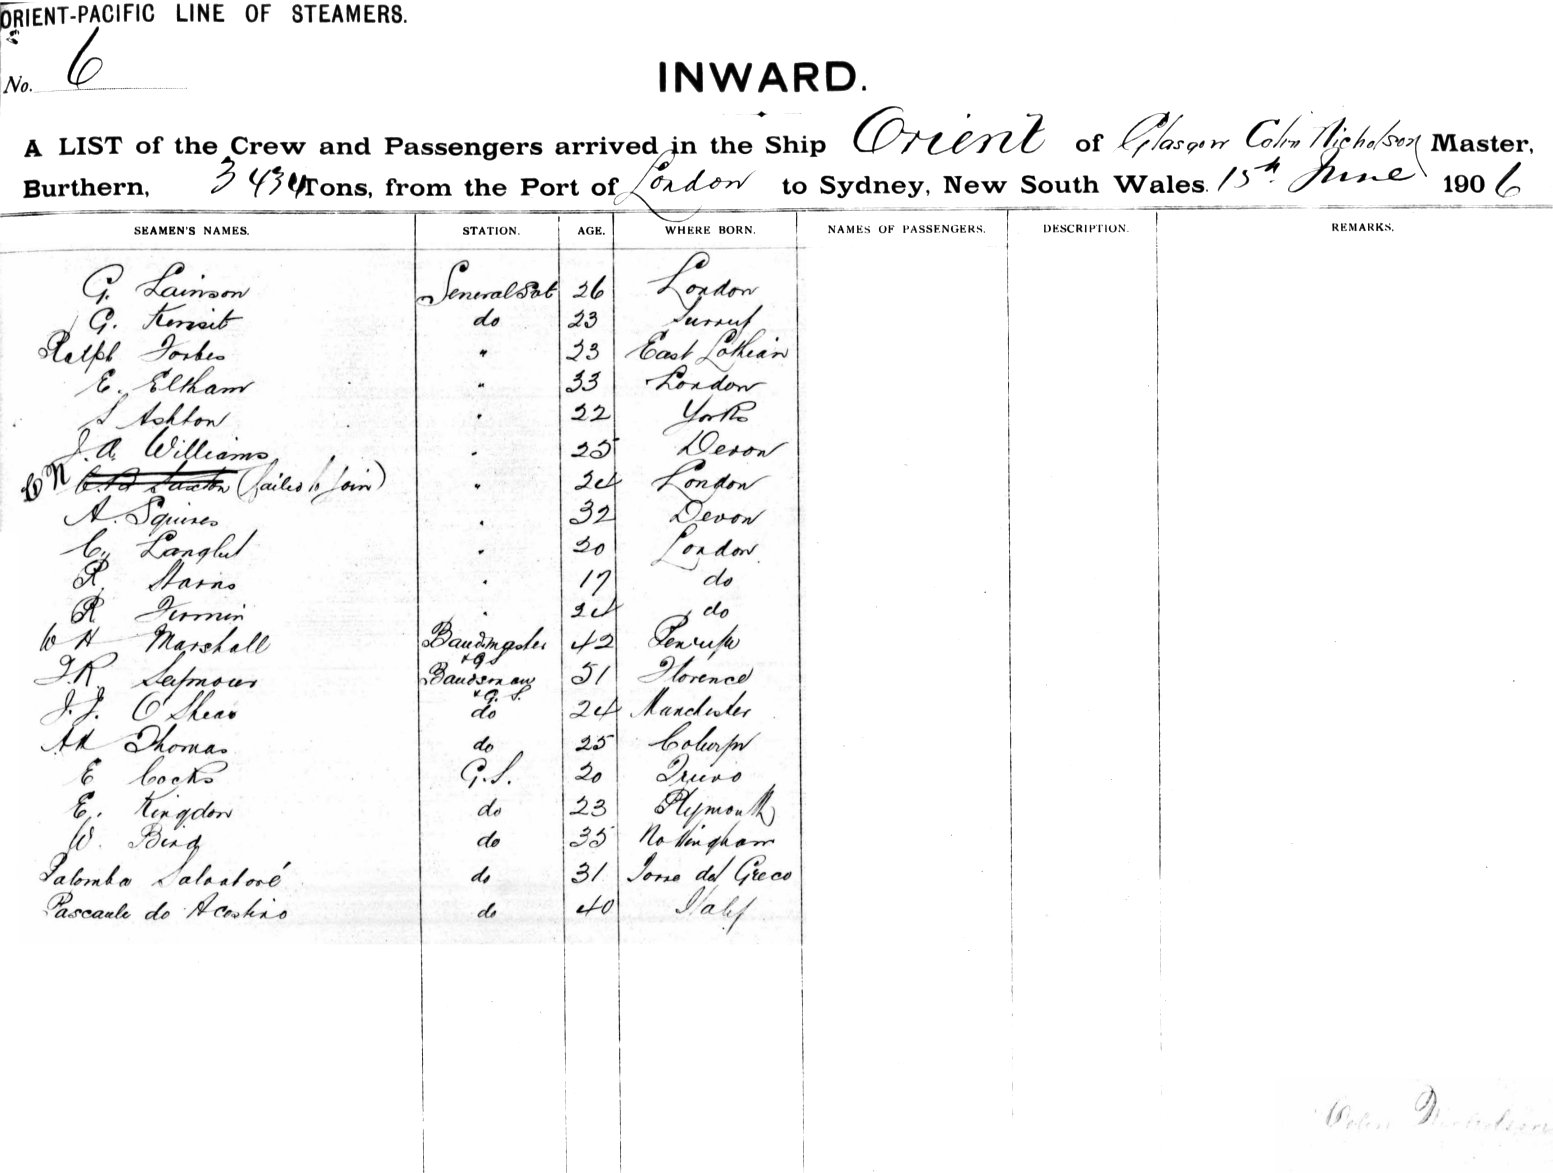 ORIENT-PACIFIC LINE OF STEAMERS.
No. 6
INWARD.
A LIST of the Crew and Passengers arrived in the Ship Orient of Glasgow Colin Nicholson Master,
Burthern, 3434 Tons, from the Port of London to Sydney, New South Wales. 15th June 1906
SEAMEN'S NAMES. STATION. AGE. WHERE BORN. NAMES OF PASSENGERS. DESCRIPTION. REMARKS.
G. Lainson General 26 London
G. do 23 Surrey
Ralph Forbes " 23 East Lothian
E. Eltham " 33 London
S Ashton " 22 Yorks
J. A. Williams " 25 Devon
CN (failed to join) " 24 London
A. Squires " 32 Devon
C. " 20 London
R. Starns " 17 do
R Firmin " 24 do
W H Marshall Bandmaster 42
+ GS
F. R. Seymour Bandsman 51 Florence
+ G. S.
J. J. O'Shea do 24 Manchester
AH Thomas do 25
E Cocks G.S. 20 Truro
E. Kingdon do 23 Plymouth
W. Bird do 35 Nottingham
Palomba Salvatoré do 31 Torre del Greco
do Acostino do 40 Italy
Colin Nicholson